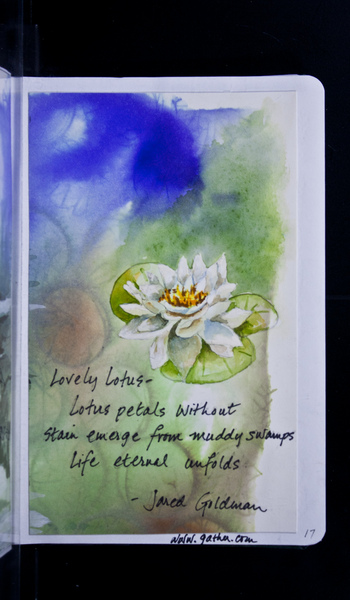 Lovely Lotus-
Lotus petals without
stain emerge from muddy swamps
life eternal unfolds
- Jared Goldman
www.gather.com
17